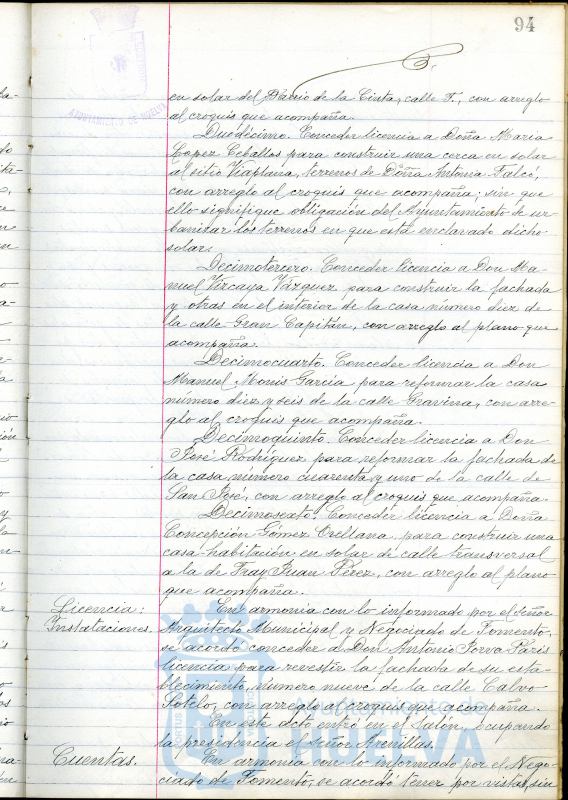 94
en solar del Barrio de la Cinta, calle F., con arreglo
al croquis que acompaña.
Duodécimo. Conceder licencia a Doña Maria
Lopez Ceballos para construir una cerca en solar
al sitio Viaplana, terrenos de Doña Antonia Falcó,
con arreglo al croquis que acompaña; sin que
ello signifique obligación del Ayuntamiento de ur-
banizar los terrenos en que está enclavado dicho
solar.
Decimotercero. Conceder licencia a Don Ma-
nuel Vizcaya Vázquez, para construir la fachada
y otras en el interior de la casa número diez de
la calle Gran Capitán, con arreglo al plano que
acompaña.
Decimocuarto. Conceder licencia a Don
Manuel Monis García para reformar la casa
número diez y seis de la calle Gravina, con arre-
glo al croquis que acompaña.
Decimoquinto. Conceder licencia a Don
José Rodríguez para reformar la fachada de
la casa número cuarenta y uno de la calle de
San José, con arreglo al croquis que acompaña.
Decimosexto. Conceder licencia a Doña
Concepción Gómez Orellana, para construir una
casa-habitación en solar de calle transversal
a la de Fray Juan Pérez, con arreglo al plano
que acompaña.
Licencia: En armonia con lo informado por el Señor
Instalaciones. Arquitecto Municipal y Negociado de Fomento,
se acordó conceder a Don Antonio París
licencia para revestir la fachada de su esta-
blecimiento, número nueve de la calle Calvo
Sotelo, con arreglo al croquis que acompaña.
En este acto entró en el Salón, ocupando
la presidencia el Señor Arenillas.
Cuentas. En armonia con lo informado por el Nego-
ciado de Fomento, se acordó tener por vistas, sin